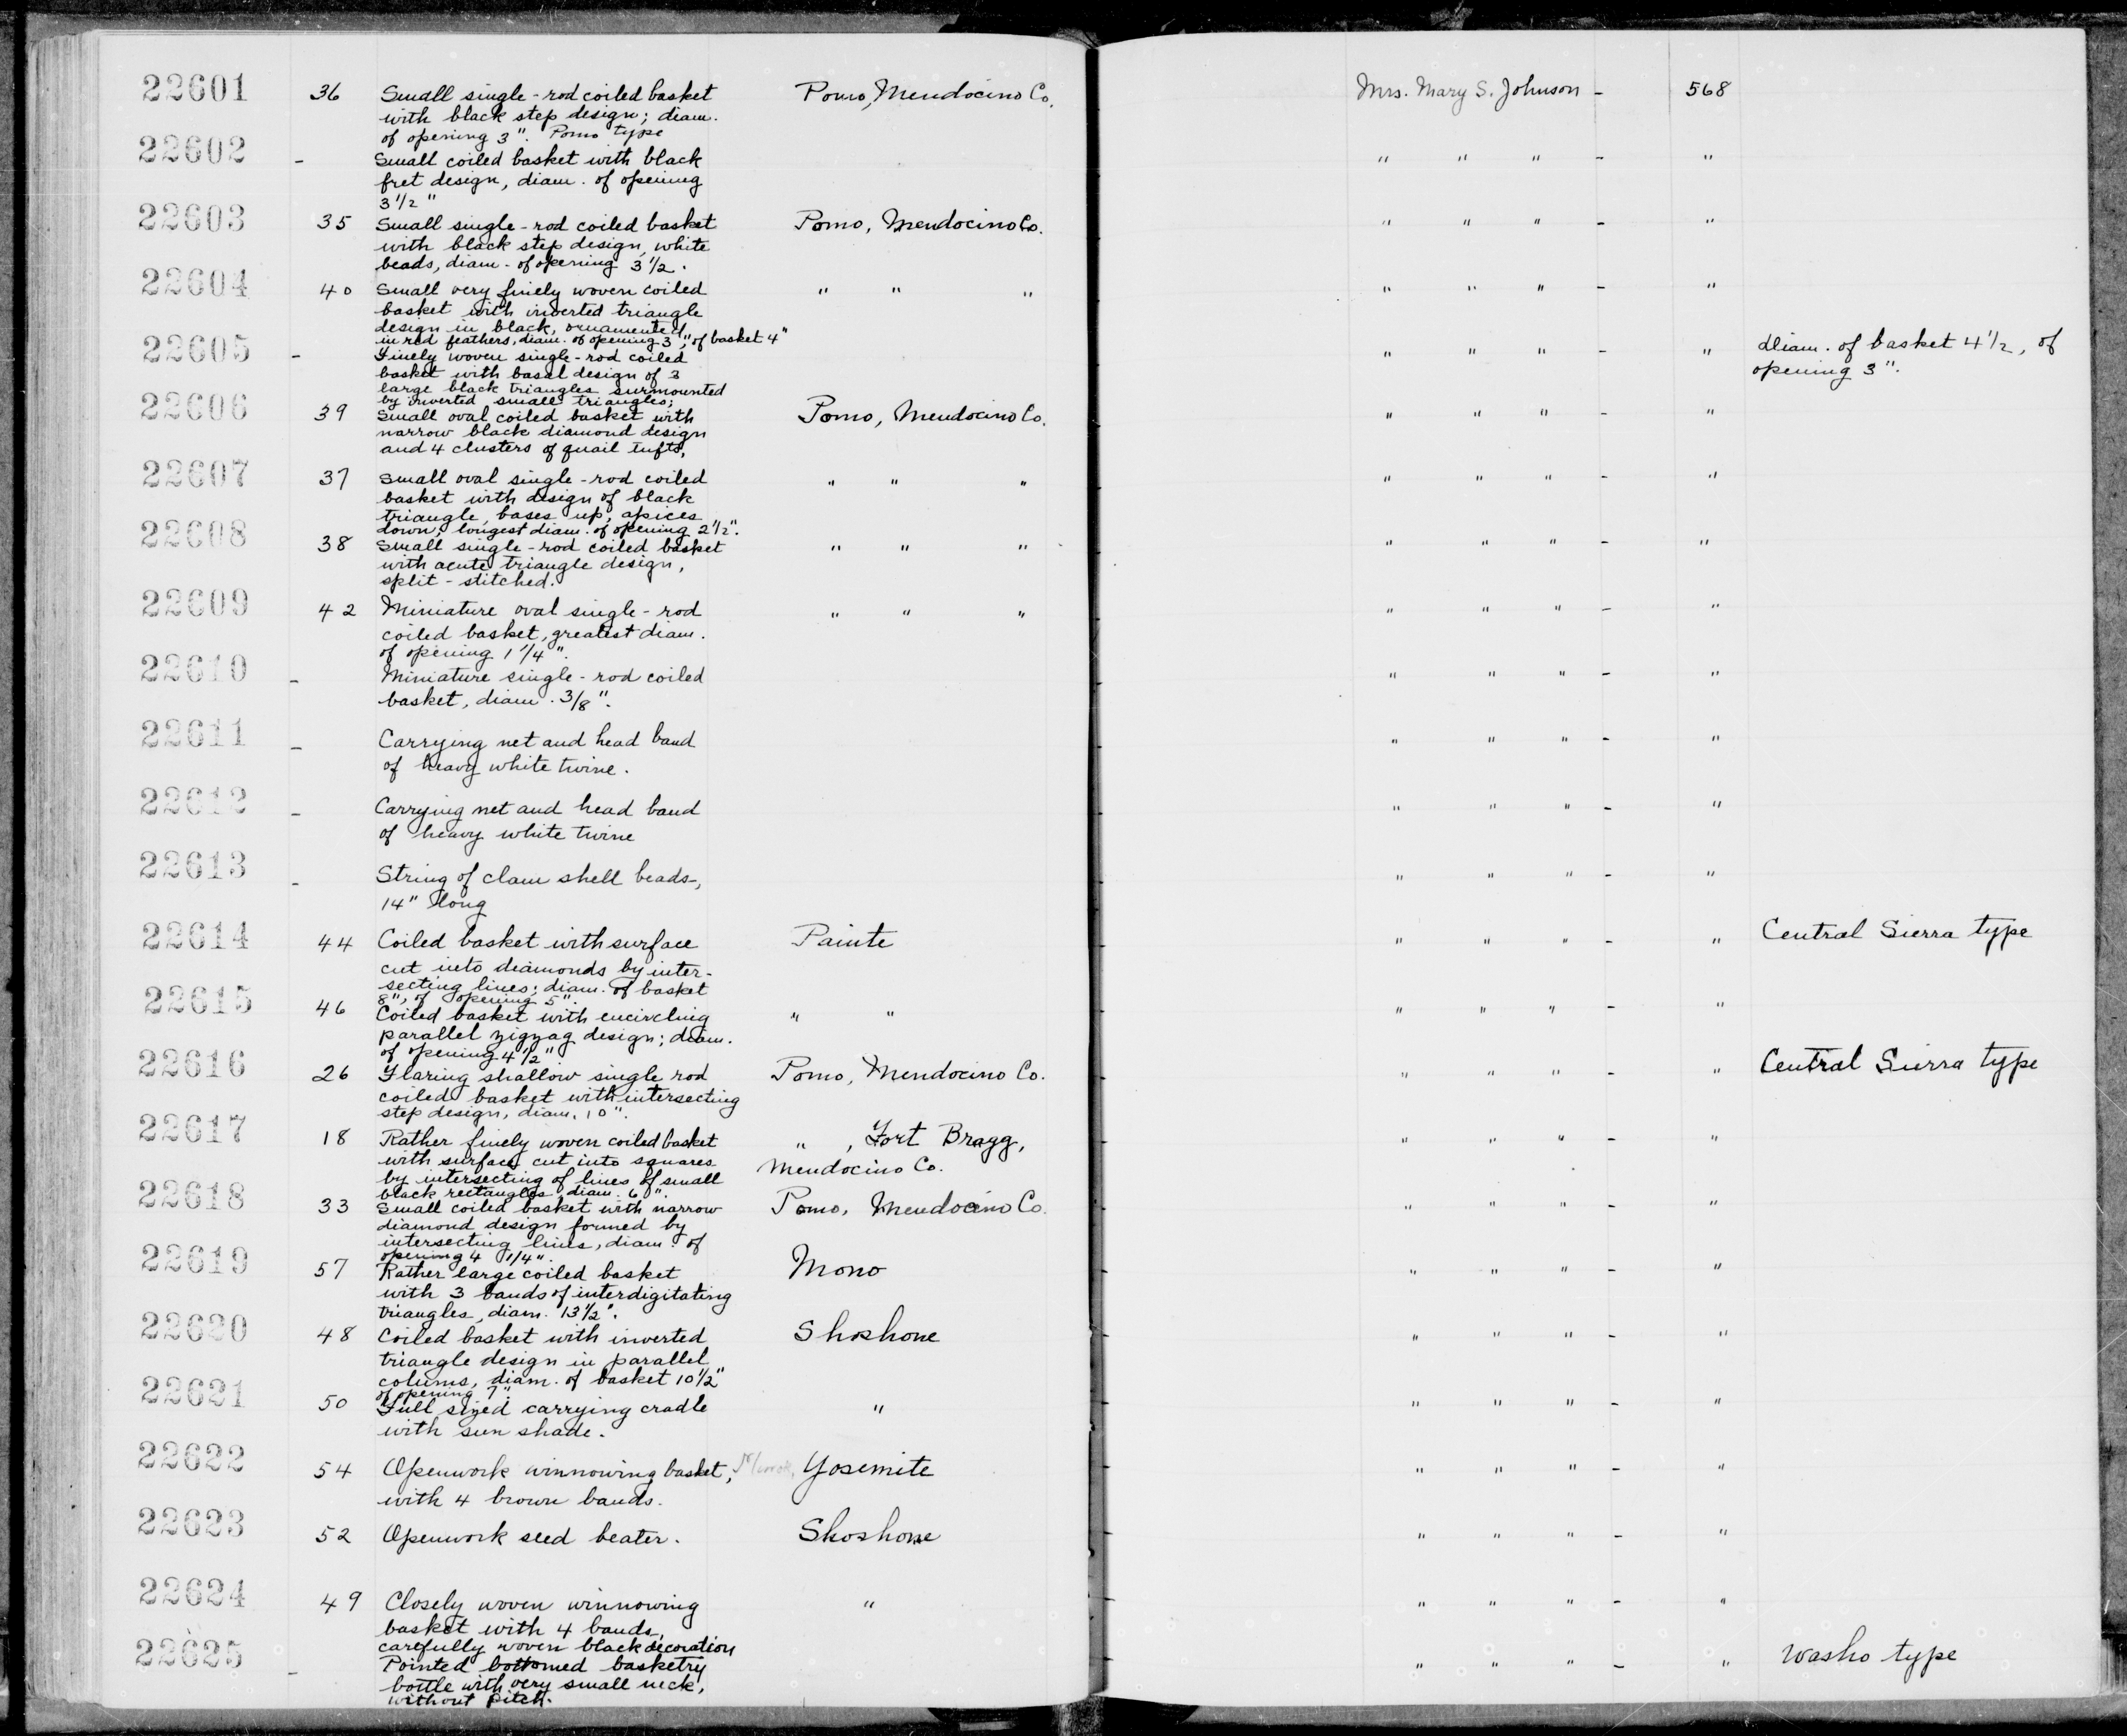 22601 36 Small single-rod coiled basket Pomo, Mendocino Co. Mrs. Mary S. Johnson - 568
with black step design; diam.
of opening 3". Pomo type
22602 - Small coiled basket with black " " " - "
fret design, diam. of opening
3 1/2"
22603 35 Small single-rod coiled basket Pomo, Mendocino Co. " " " - "
with black step design, white
beads, diam. of opening 3 1/2.
22604 40 Small very finely woven coiled " " " " " " - "
basket with inverted triangle
design in black, ornamented
in red feathers, diam. of opening 3", of basket 4"
22605 - Finely woven single-rod coiled " " " - " diam. of basket 4 1/2, of
basket with basal design of 3 opening 3".
large black triangles surmounted
by inverted small triangles;
22606 39 Small oval coiled basket with Pomo, Mendocino Co. " " " - "
narrow black diamond design
and 4 clusters of quail tufts,
22607 37 Small oval single-rod coiled " " " " " " - "
basket with design of black
triangle, bases up, apices
down; longest diam. of opening 2 1/2".
22608 38 Small single-rod coiled basket " " " " " " - "
with acute triangle design,
split-stitched.
22609 42 Miniature oval single-rod " " " " " " - "
coiled basket, greatest diam.
of opening 1 1/4".
22610 - Miniature single-rod coiled " " " - "
basket, diam. 3/8".
22611 - Carrying net and head band " " " - "
of heavy white twine.
22612 - Carrying net and head band " " " - "
of heavy white twine
22613 - String of clam shell beads-, " " " - "
14" long
22614 44 Coiled basket with surface Paiute " " " - " Central Sierra type
cut into diamonds by inter-
secting lines; diam. of basket
8", of opening 5".
22615 46 Coiled basket with encircling " " " " " - "
parallel zigzag design; diam.
of opening 4 1/2"
22616 26 Flaring shallow single rod Pomo, Mendocino Co. " " " - " Central Sierra type
coiled basket with intersecting
step design, diam. 10".
22617 18 Rather finely woven coiled basket " , Fort Bragg, " " " - "
with surface cut into squares Mendocino Co.
by intersecting of lines of small
black rectangles, diam. 6".
22618 33 Small coiled basket with narrow Pomo, Mendocino Co. " " " - "
diamond design formed by
intersecting lines, diam. of
opening 4 1/4".
22619 57 Rather large coiled basket Mono " " " - "
with 3 bands of interdigitating
triangles, diam. 13 1/2".
22620 48 Coiled basket with inverted Shoshone " " " - "
triangle design in parallel
colums, diam. of basket 10 1/2"
of opening 7".
22621 50 Full sized carrying cradle " " " " - "
with sun shade.
22622 54 Openwork winnowing basket, Yosemite " " " - "
with 4 brown bands.
22623 52 Openwork seed beater. Shoshone " " " - "
22624 49 Closely woven winnowing " " " " - "
basket with 4 bands,
carefully woven black decoration
22625 - Pointed bottomed basketry " " " - " Washo type
bottle with very small neck,
without pitch.